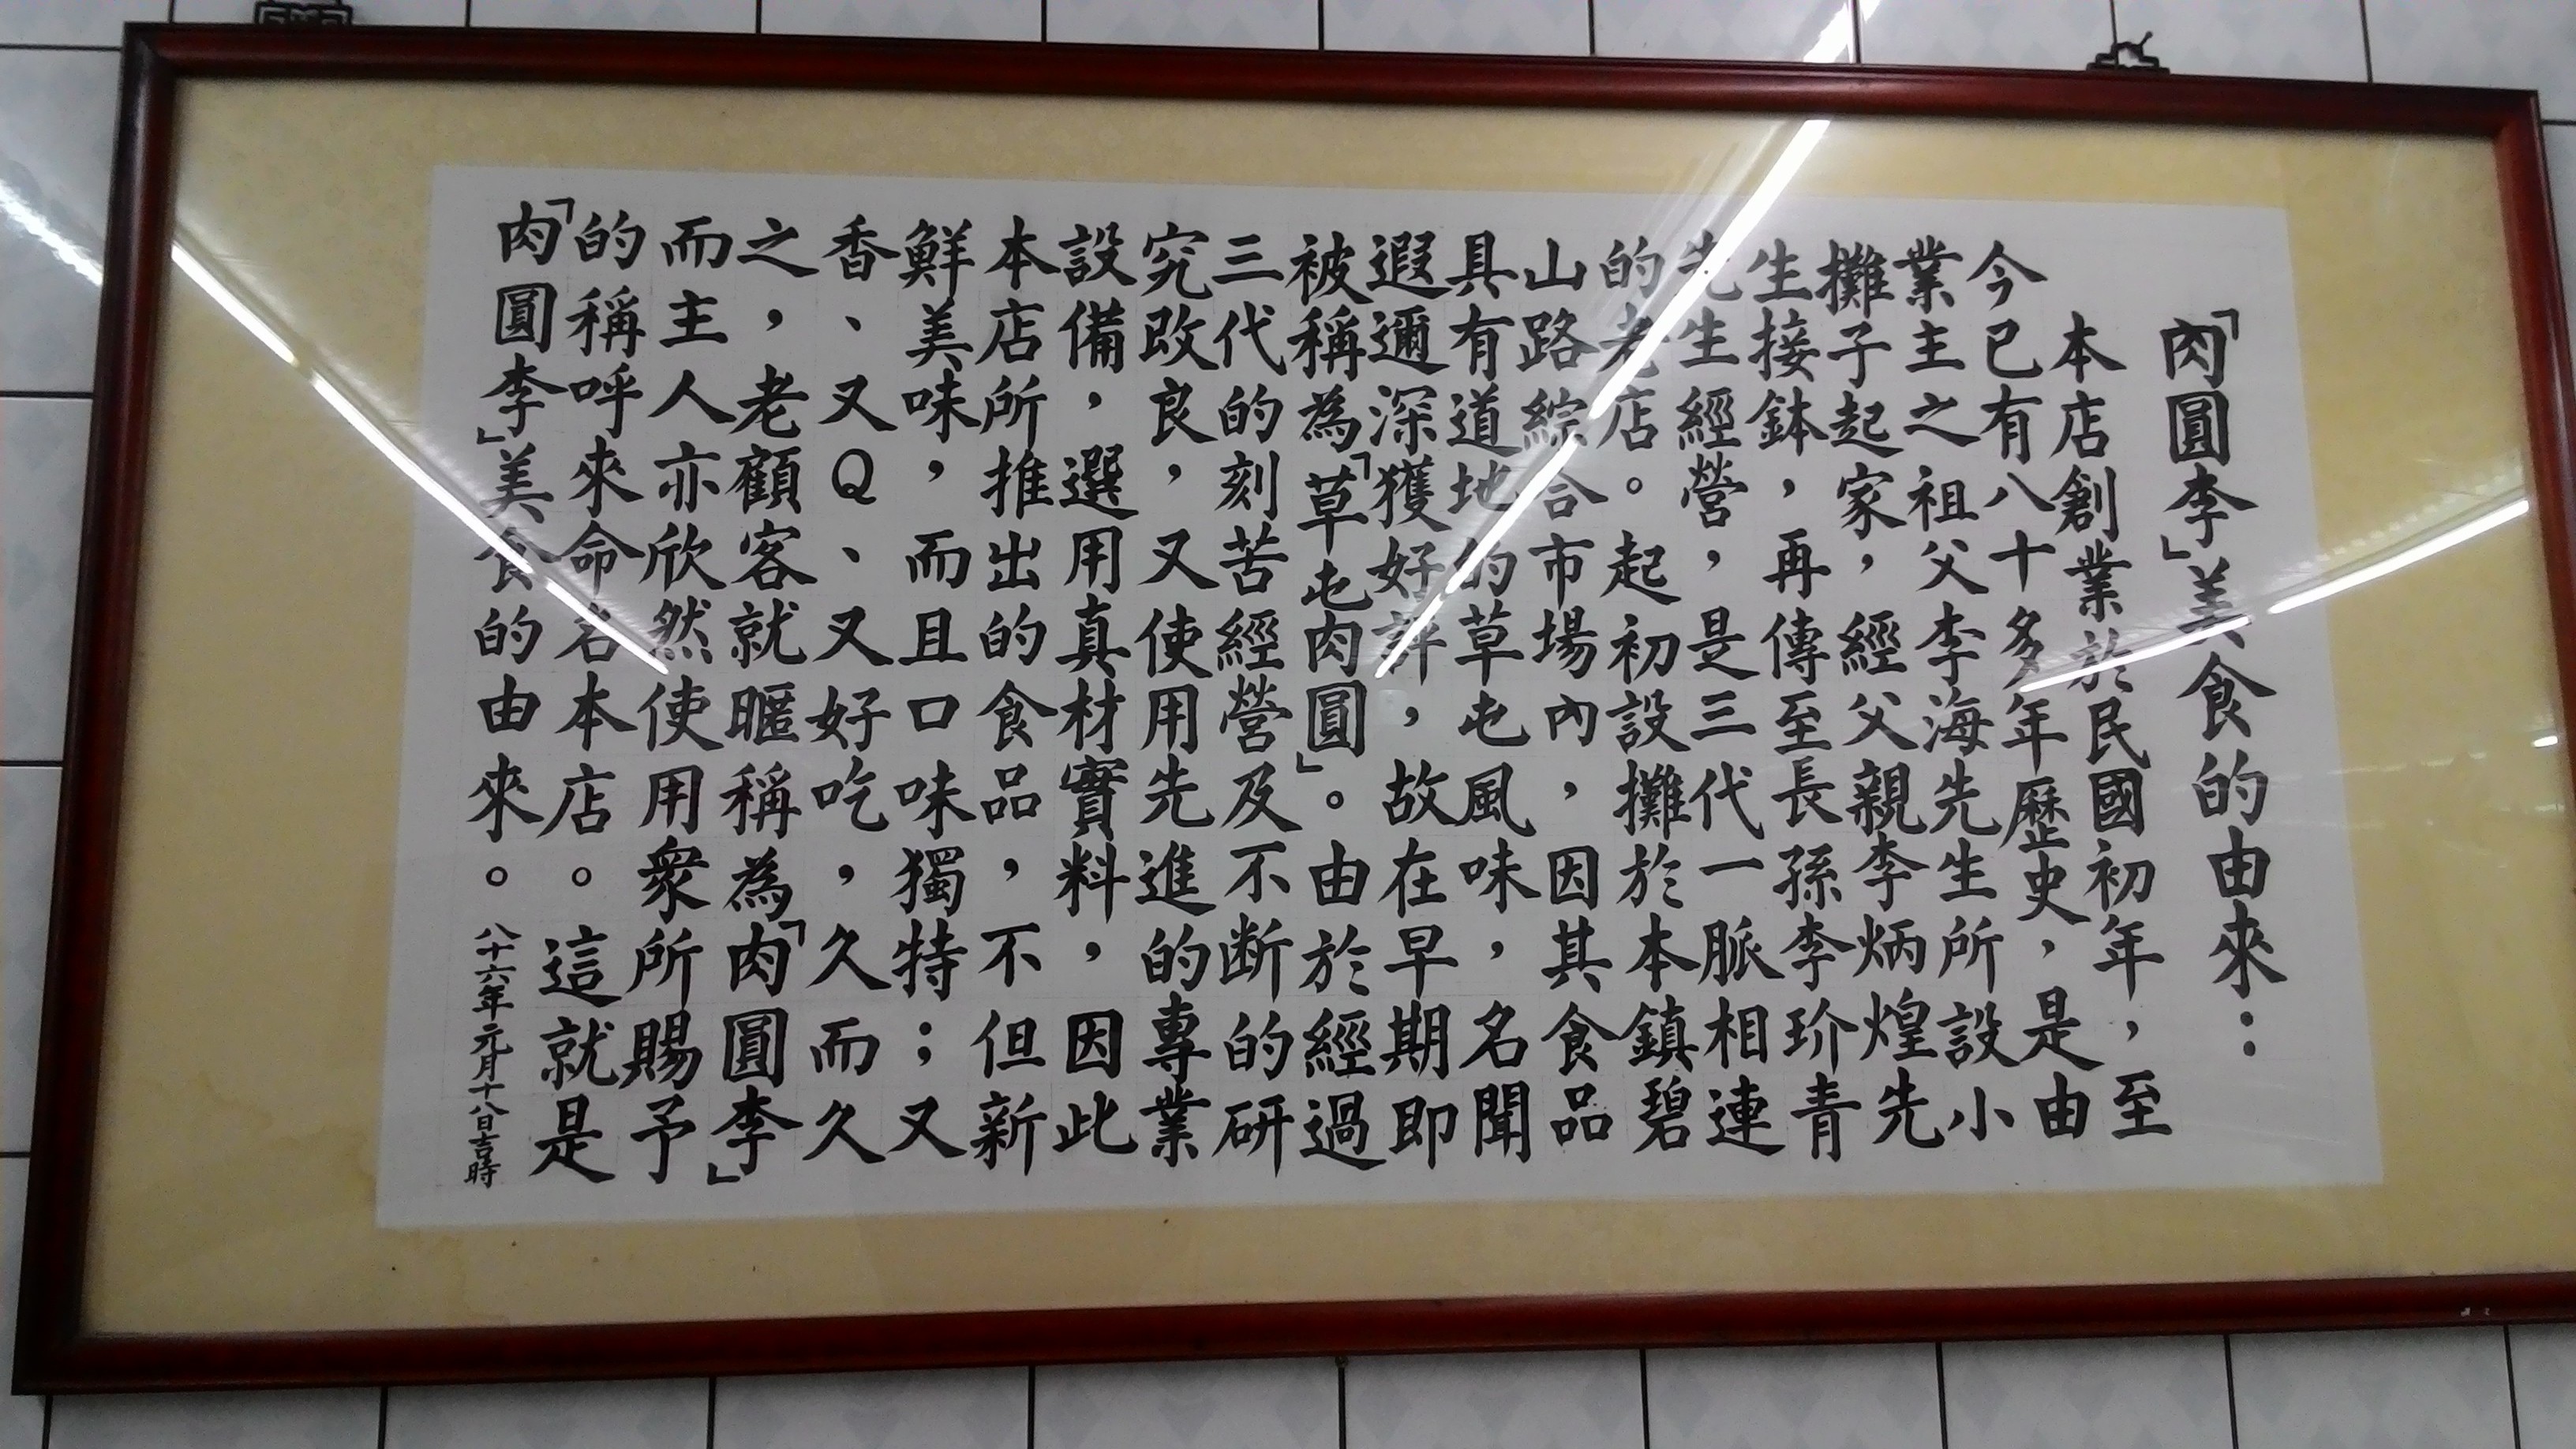 「肉圓李」美食的由來：
本店創業於民國初年，至
今已有八十多年歷史，是由
業主之祖父李海先生所設小
攤子起家，經父親李炳煌先
生接鉢，再傳至長孫李玠青
先生經營，是三代一脈相連
的老店。起初設攤於本鎮碧
山路綜合市場內，因其食品
具有道地的草屯風味，名聞
遐邇深獲好評，故在早期即
被稱為「草屯肉圓」。由於經過
三代的刻苦經營及不斷的研
究改良，又使用先進的專業
設備，選用真材實料，因此
本店所推出的食品，不但新
鮮美味，而且口味獨特；又
香、又Q、又好吃，久而久
之，老顧客就暱稱為「肉圓李」
而主人亦欣然使用眾所賜予
的稱呼來命名本店。這就是
「肉圓李」美食的由來。
八十六年元月十八日吉時